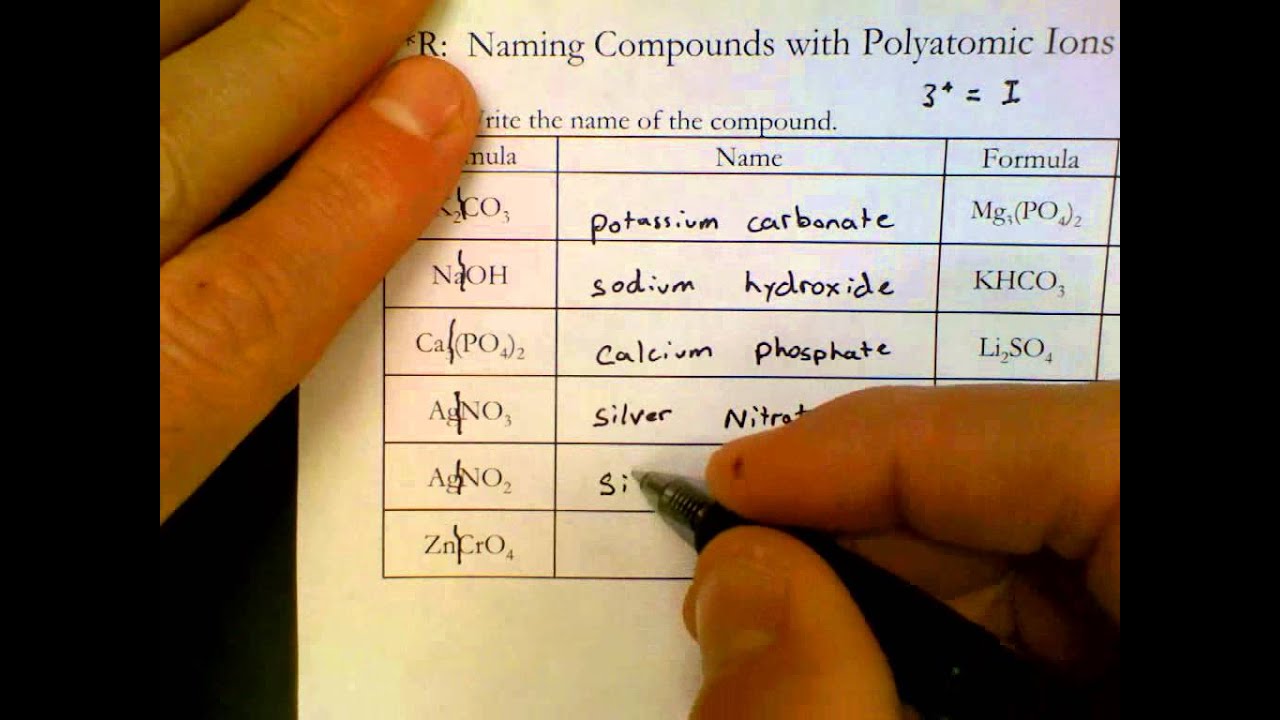 *R: Naming Compounds with Polyatomic Ions
3⁺ = I
Write the name of the compound.
Name Formula
K₂CO₃ potassium carbonate Mg₃(PO₄)₂
NaOH sodium hydroxide KHCO₃
(PO₄)₂ calcium phosphate Li₂SO₄
AgNO₃ silver
AgNO₂ Si
ZnCrO₄